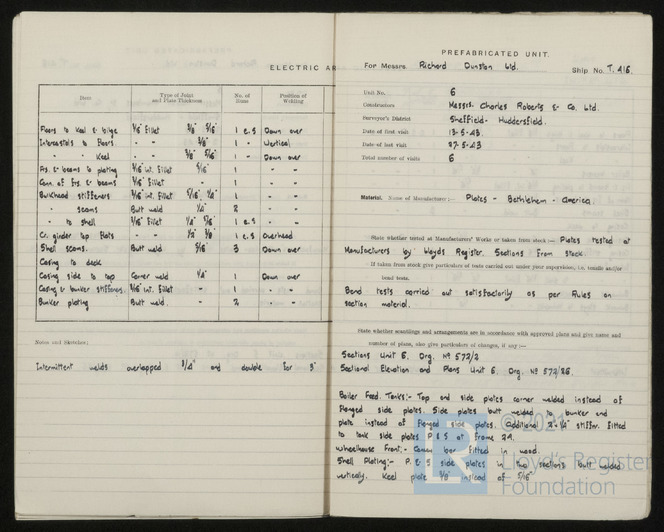 ELECTRIC AR
Item Type of Joint and Plate Thickness No. of Runs Position of Welding
Floors to Keel & bilge 3/16" Fillet 3/8" 5/16" 1 e.s Down over
Intercostals to Floors " - 3/8" 1 - Vertical
" " Keel " - 3/8" 5/16" 1 - Down over
Frs. & beams to plating 3/16" int. fillet 5/16" 1 " "
Conn. of Frs. & beams 3/16" fillet - 1 " "
Bulkhead stiffeners 3/16" int. fillet 5/16" 1/4" 1 " "
" seams Butt weld 1/4" 2 " "
" to shell 3/16" fillet 1/4" 5/16" 1 e.s - "
Cr. girder top flats " - 1/2" 3/8" 1 e.s Overhead
Shell seams. Butt weld 5/16" 3 Down over
Casing to deck
Casing side to top Corner weld 1/4" 1 Down over
Casing & bunker stiffeners. 3/16" int. Fillet - 1 " "
Bunker plating Butt weld. - 2 " "
Notes and Sketches:
Intermittent welds overlapped 3/4" and double for 3"
PREFABRICATED UNIT.
For Messrs. Richard Dunston Ltd. Ship No. T. 416.
Unit No. 6
Constructors Messrs. Charles Roberts & Co. Ltd.
Surveyor's District Sheffield - Huddersfield.
Date of first visit 13-5-43.
Date of last visit 27-5-43
Total number of visits 6
Material. Name of Manufacturer :— Plates - Bethlehem - America.
State whether tested at Manufacturers' Works or taken from stock :— Plates tested at
Manufacturers by Lloyds Register. Sections from stock.
If taken from stock give particulars of tests carried out under your supervision, i.e. tensile and/or
bend tests.
Bend tests carried out satisfactorily as per Rules on
section material.
State whether scantlings and arrangements are in accordance with approved plans and give name and
number of plans, also give particulars of changes, if any :—
Sections Unit 6. Drg. Nº 572/2
Sectional Elevation and Plans Unit 6. Drg. Nº 572/26.
Boiler Feed. Tanks:- Top and side plates corner welded instead of
flanged side plates. Side plates butt welded to bunker end
plate instead of flanged side plates. Additional 2" x 1/4" stiffr. fitted
to tank side plates P & S at frame 24.
Wheelhouse Front:- Camber bar fitted in wood.
Shell Plating:- P. & S side plates in two sections butt welded
vertically. Keel plate 3/8" instead of 5/16"
© 2021
Lloyd's Register
Foundation